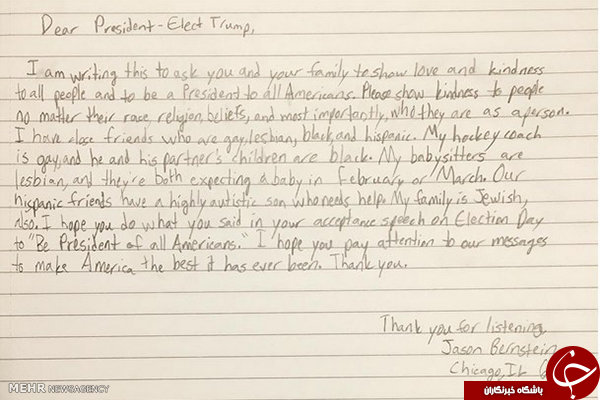 Dear President-Elect Trump,
I am writing this to ask you and your family to show love and kindness
to all people and to be a President to all Americans. Please show kindness to people
no matter their race, religion, beliefs, and most importantly, who they are as a person.
I have close friends who are gay, lesbian, black, and hispanic. My hockey coach
is gay, and he and his partner's children are black. My babysitters are
lesbian, and they're both expecting a baby in February or March. Our
hispanic friends have a highly autistic son who needs help. My family is Jewish,
also. I hope you do what you said in your acceptance speech on Election Day
to "Be President of all Americans." I hope you pay attention to our messages
to make America the best it has ever been. Thank you.
Thank you for listening
Jason Bernstein
Chicago, IL
MEHR NEWSAGENCY
باشگاه خبرنگاران